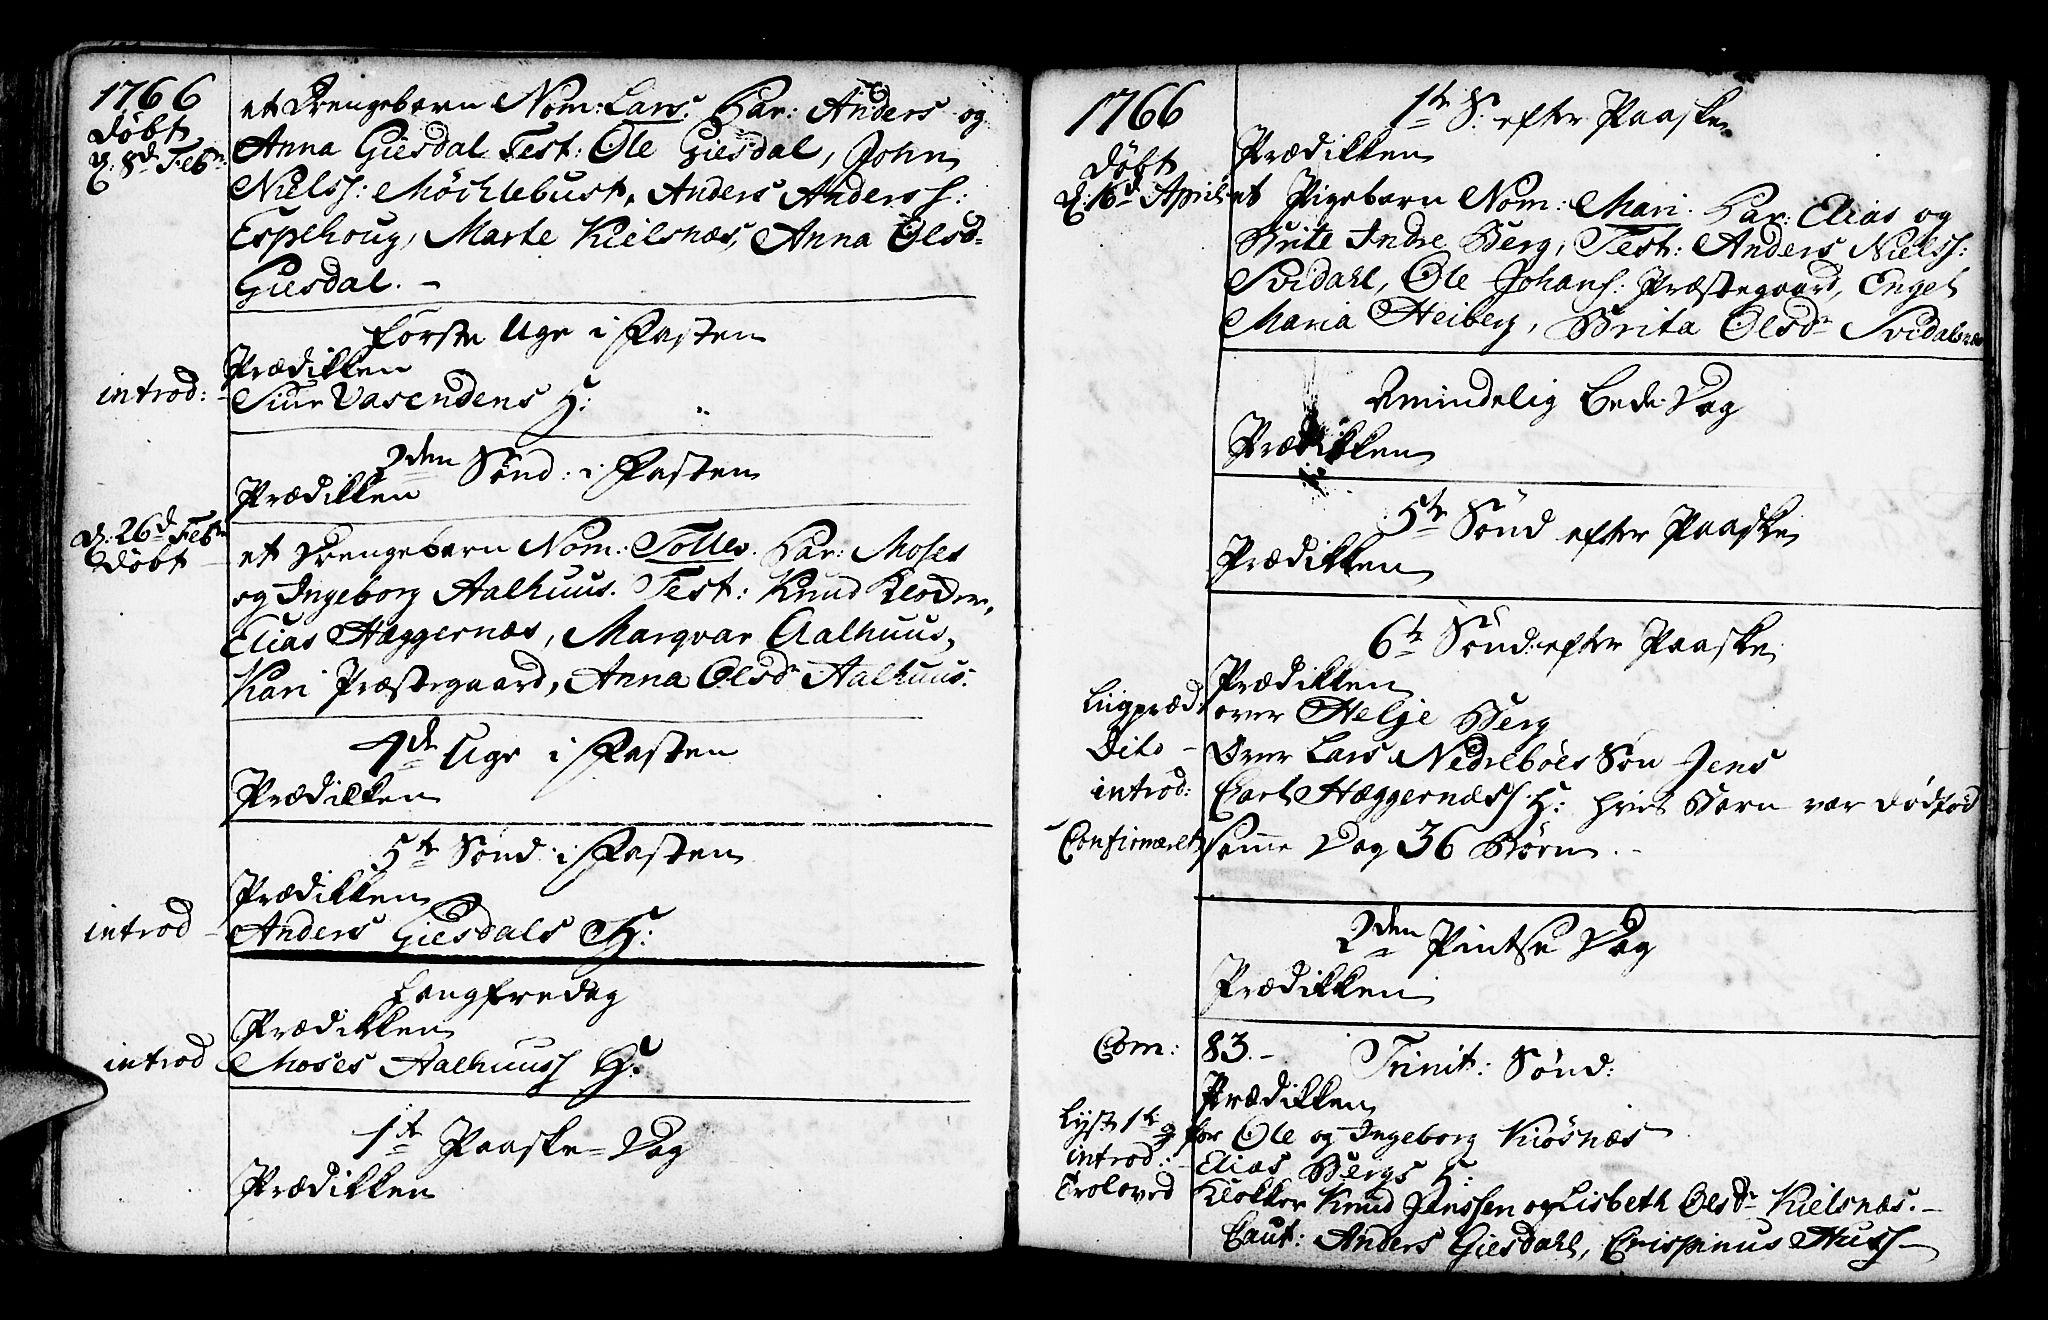 1766
Døbt
d: 8de Febr:
et Drengebarn Nom: Lars. Par: Anders og
Anna Giesdal Test: Ole Giesdal, John
Nielss: Möchlebust, Anders Anderss:
Espehoug, Marte Kielsnæs, Anna Olsd=
Giesdal. –
første Uge i Fasten
Prædikken
introd: Siur Vasendens H:
2den Sønd: i Fasten
Prædikken
d: 26de Febr
Døbt
et Drengebarn Nom: Tolles. Par: Moses
og Ingeborg Aalhuus. Test: Knud Klocker,
Elias Hæggernæs, Marqvar Aalhuus,
Kari Præstegaard, Anna Olsdr Aalhuus.
4de Uge i Fasten
Prædikken
5te Sønd: i Fasten
Prædikken
introd – Anders Giesdals H:
Langfredag
Prædikken
introd Moses Aalhuuss H:
1te Paaske=Dag
Prædikken
1766
1te S: efter Paaske
Prædikken
Døbt
d: 16de April
et Pigebarn Nom: Mari. Par: Elias og
Brite Indre Berg, Test: Anders Nielss:
Svidahl, Ole Johans: Præstegaard, Engel
Maria Heiberg, Brita Olsdr Svidalsnæs
Almindelig Bede-Dag
Prædikken
5te Sønd efter Paaske
Prædikken
6te Sønd: efter Paaske
Prædikken
Liigpræd: over Helje Berg
Dito – Over Lars Nedrebøes Søn Jens
introd: Carl Hæggernæss H: hvis Barn var dødfød
Confirmeret samme Dag 36 Børn. –
2den Pintse Dag
Prædikken
Com: 83. – Trinit: Sønd:
Prædikken
Lyst 1te g for Ole og Ingeborg Kiösnæs
introd: – Elias Bergs H:
Troloved Klokker Knud Janssen og Lisbeth Olsdr Kielsnæs. –
Caut: Anders Giesdahl, Crispinus Huss –